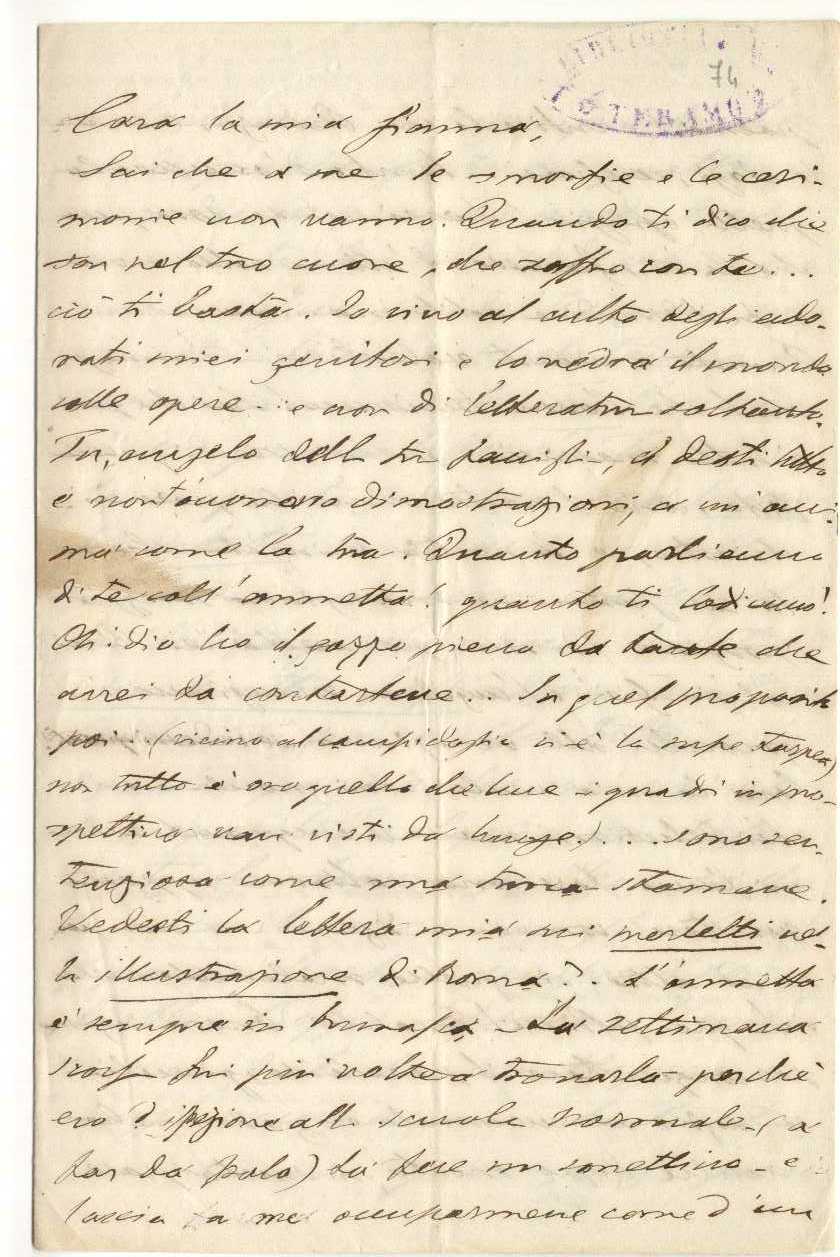 74
TERAMO
Cara la mia Gianna,
Sai che a me le smorfie e le ceri-
monie non vanno. Quando ti dico che
son nel tuo cuore, che soffro con te...
ciò ti basta. Io vivo al culto degli ado-
rati miei genitori e lo vedrà il mondo
nelle opere e non di letteratura soltanto.
Tu, angelo della tua famiglia, desti tutto
e non occorrono dimostrazioni, a un' ani-
ma come la tua. Quanto parliamo
di te coll' annetta! quanto ti lodiamo!
Oh. Dio ho il gozzo pieno da tante che
avrei da contartene.. In quel proposito
poi.. (vicino al campidoglio vi è la rupe tarpea)
non tutto è oro quello che luce - i quadri in pro-
spettiva van visti da lunge.)... sono sen-
tenziosa come una stamane.
Vedesti la lettera mia sui merletti nel-
la illustrazione di Roma?. L'annetta
è sempre in - La settimana
scorsa fui più volte a trovarla perchè
ero d' ispezione alla scuola normale (a
far da palo) fa fare un sonettino - e
lascia a me occuparmene come d'un